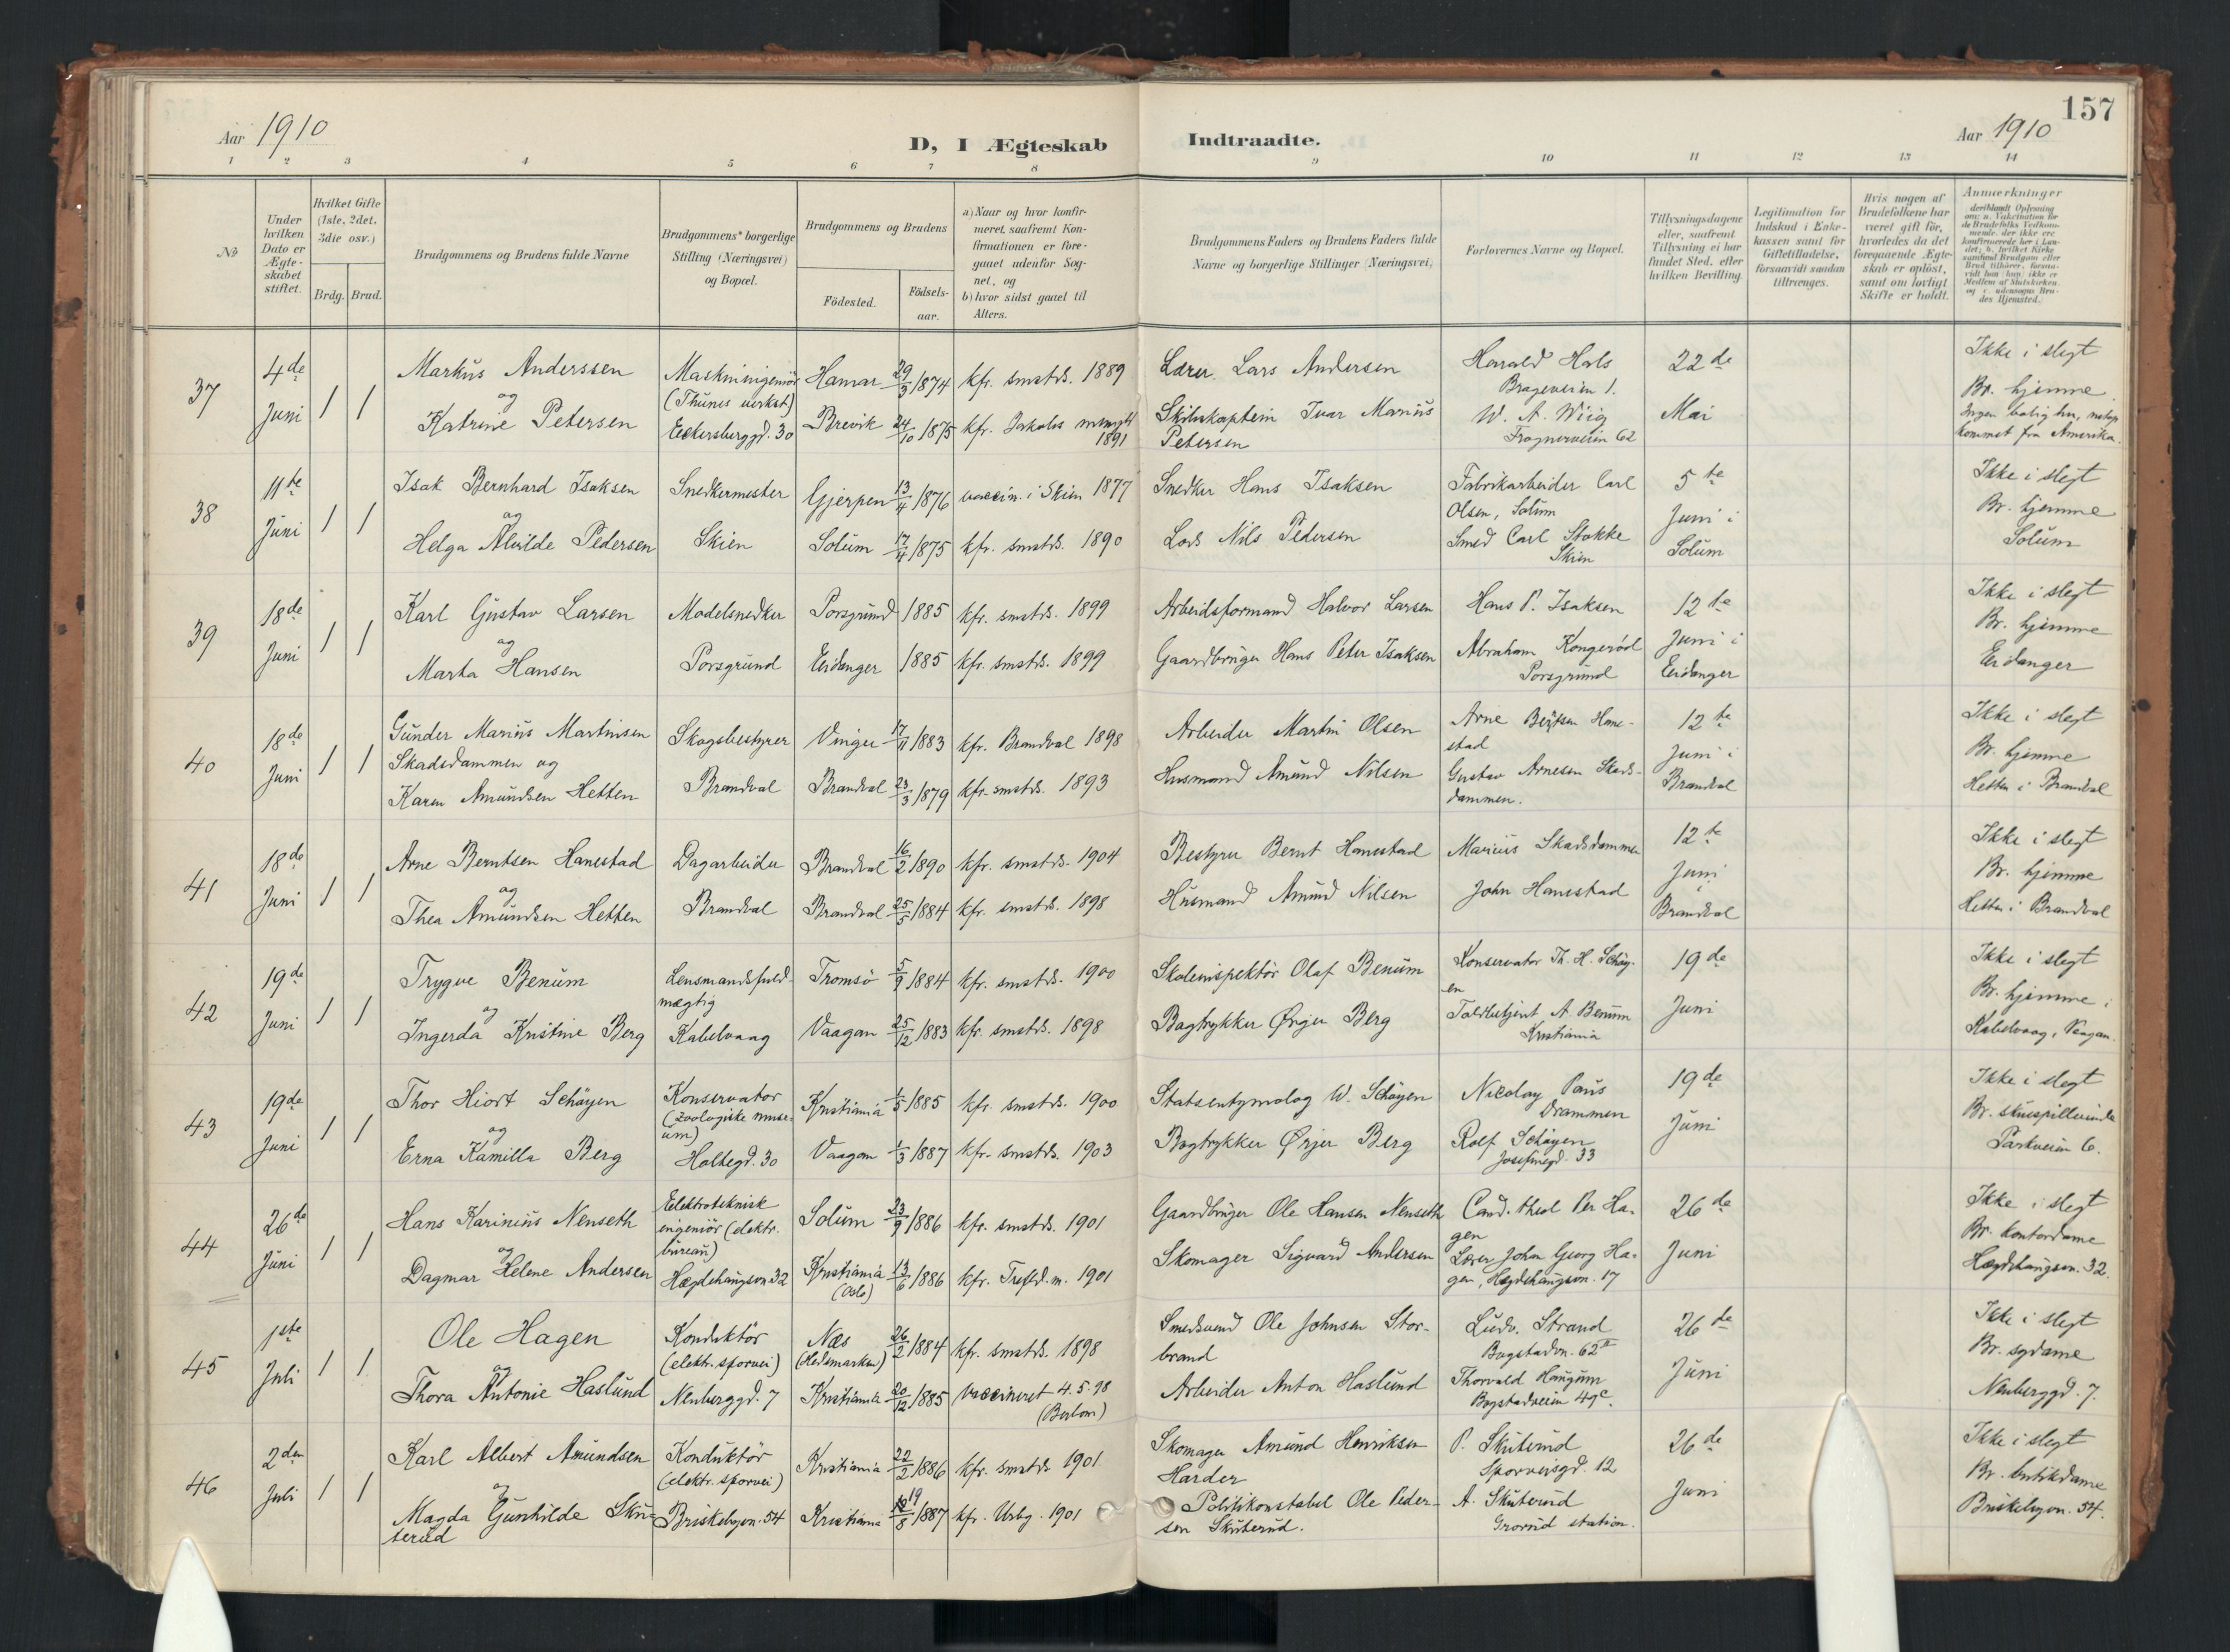 157
Aar 1910
D, I Ægteskab Indtraadte.
Aar 1910
1 2 3 4 5 6 7 8 9 10 11 12 13 14
No
Under hvilken Dato er Ægte-skabet stiftet.
Hvilket Gifte (1ste, 2det, 3die osv.)
Brdg. Brud.
Brudgommens og Brudens fulde Navne
Brudgommens* borgerlige Stilling (Næringsvei) og Bopæl.
Brudgommens og Brudens
Fødested.
Fødsels-aar.
a) Naar og hvor konfir-meret, saafremt Kon-firmationen er fore-gaaet udenfor Sog-net, og
b) hvor sidst gaaet til Alters.
Brudgommens Faders og Brudens Faders fulde Navne og borgerlige Stillinger (Næringsvei)
Forlovernes Navne og Bopæl.
Tillysningsdagene eller, saafremt Tillysning ei har fundet Sted, efter hvilken Bevilling.
Legitimation for Indskud i Enke-kassen samt for Giftetilladelse, forsaavidt saadan tiltrænges.
Hvis nogen af Brudefolkene har været gift før, hvorledes da det foregaaende Ægte-skab er opløst, samt om lovligt Skifte er holdt.
Anmærkninger
deriblandt Oplysning om: a. Vakcination for de Brudefolks Vedkom-mende, der ikke ere konfirmerede her i Lan-det; b. hvilket Kirke-samfund Brudgom eller Brud tilhører, forsaa-vidt han (hun) ikke er Medlem af Statskirken, og c. udensogns Bru-des Hjemsted.
37
4de Juni
1 1
Markus Anderssen
og
Katrine Petersen
Maskiningeniør
(Thunes verkst)
Eckersberggd. 30
Hamar 29/3 1874 kfr. smstds. 1889
Brevik 24/10 1875 kfr. Jakobs menigh 1891
Lærer Lars Andersen
Skibskaptein Ivar Marius
Petersen
Harald Hals
Brageveien 1.
W. A. Wiig
Frognerveien 62
22de
Mai
Ikke i slegt
Br. hjemme.
Ingen bolig her, netop
kommet fra Amerika.
38
11te Juni
1 1
Isak Bernhard Isaksen
og
Helga Alvilde Pedersen
Snedkermester
Skien
Gjerpen 13/4 1876 vaccin. i Skien 1877
Solum 17/4 1875 kfr. smstds. 1890
Snedker Hans Isaksen
Lods Nils Pedersen
Fabrikarbeider Carl
Olsen, Solum
Smed Carl Stokke
Skien
5te
Juni i
Solum
Ikke i slegt
Br. hjemme
Solum
39
18de Juni
1 1
Karl Gustav Larsen
og
Marta Hansen
Modelsnedker
Porsgrund
Porsgrund 1885 kfr. smstds. 1899
Eidanger 1885 kfr. smstds. 1899
Arbeidsformand Halvor Larsen
Gaardbruger Hans Peter Isaksen
Hans P. Isaksen
Abraham Kongerød
Porsgrund
12te
Juni i
Eidanger
Ikke i slegt
Br. hjemme
Eidanger
40
18de Juni
1 1
Gunder Marius Martinsen
Skadsdammen og
Karen Amundsen Hetten
Skogsbestyrer
Brandval
Vinger 17/11 1883 kfr. Brandval 1898
Brandval 23/3 1879 kfr. smstds. 1893
Arbeider Martin Olsen
Husmand Amund Nilsen
Arne Hane-
stad
Gustav Arnesen Skads-
dammen.
12te
Juni i
Brandval
Ikke i slegt
Br. hjemme
Hetten i Brandval
41
18de Juni
1 1
Arne Berntsen Hanestad
og
Thea Amundsen Hetten
Dagarbeider
Brandval
Brandval 16/2 1890 kfr. smstds. 1904
Brandval 25/5 1884 kfr. smstds. 1898
Bestyrer Bernt Hanestad
Husmand Amund Nilsen
Marius Skadsdammen
John Hanestad
12te
Juni
i
Brandval
Ikke i slegt
Br. hjemme
Hetten i Brandval
42
19de Juni
1 1
Trygve Benum
og
Ingerda Kristine Berg
Lensmandsfuld-
mægtig
Kabelvaag
Tromsö 5/9 1884 kfr. smstds. 1900
Vaagan 25/12 1883 kfr. smstds. 1898
Skoleinspektör Olaf Benum
Bogtrykker Ørjer Berg
Konservator Th. H. Schøy-
en
Toldbetjent A. Benum
Kristiania
19de
Juni
Ikke i slegt
Br. hjemme i
Kabelvaag, Vaagan.
43
19de Juni
1 1
Thor Hiort Schøyen
og
Erna Kamilla Berg
Konservator
(zoologiske muse-
um)
Holtegd. 30
Kristiania 1/5 1885 kfr. smstds. 1900
Vaagan 1/3 1887 kfr. smstds. 1903
Statsentymolog W. Schøyen
Bogtrykker Ørjer Berg
Nicolay Paus
Drammen
Rolf Schøyen
Josefinegd. 33
19de
Juni
Ikke i slegt
Br. skuespillerinde
Parkveien 6.
44
26de Juni
1 1
Hans Karinius Nenseth
og
Dagmar Helene Andersen
Elektroteknisk
ingeniör (elektr.
bureau)
Hægdehaugsvn 32
Solum 23/9 1886 kfr. smstds. 1901
Kristiania (Oslo) 13/6 1886 kfr. Trefold. m. 1901
Gaardbruger Ole Hansen Nenseth
Skomager Sigvard Andersen
Cand. theol Per Ha-
gen
Lærer John Georg Ha-
gen, Hægdehaugsvn. 17
26de
Juni
Ikke i slegt
Br. kontordame
Hægdehaugsvn. 32.
45
1ste Juli
1 1
Ole Hagen
og
Thora Antonie Haslund
Konduktör
(elektr. sporvei)
Neuberggd. 7
Næs (Hedemarken) 26/2 1884 kfr. smstds. 1898
Kristiania 20/12 1885 vaccineret 4.5.98
Smedsvend Ole Johnsen Stor-
brand
Arbeider Anton Haslund
Ludv. Strand
Bogstadvn. 62 II
Thorvald Haugum
Bogstadveien 49c.
26de
Juni
Ikke i slegt
Br. sydame
Neuberggd. 7.
46
2den Juli
1 1
Karl Albert Amundsen
og
Magda Gunhilde Sku-
terud
Konduktör
(elektr. sporvei)
Briskebyvn. 54
Kristiania 22/2 1886 kfr. smstds 1901
Kristiania 19/8 1887 kfr. Urbg. 1901
Skomager Amund Henriksen
Harder
Politikonstabel Ole Peder-
sen Skuterud.
P. Skuterud
Sporveisgd. 12
A. Skuterud
Grorud station.
26de
Juni
Ikke i slegt
Br. butikdame
Briskebyvn. 54.